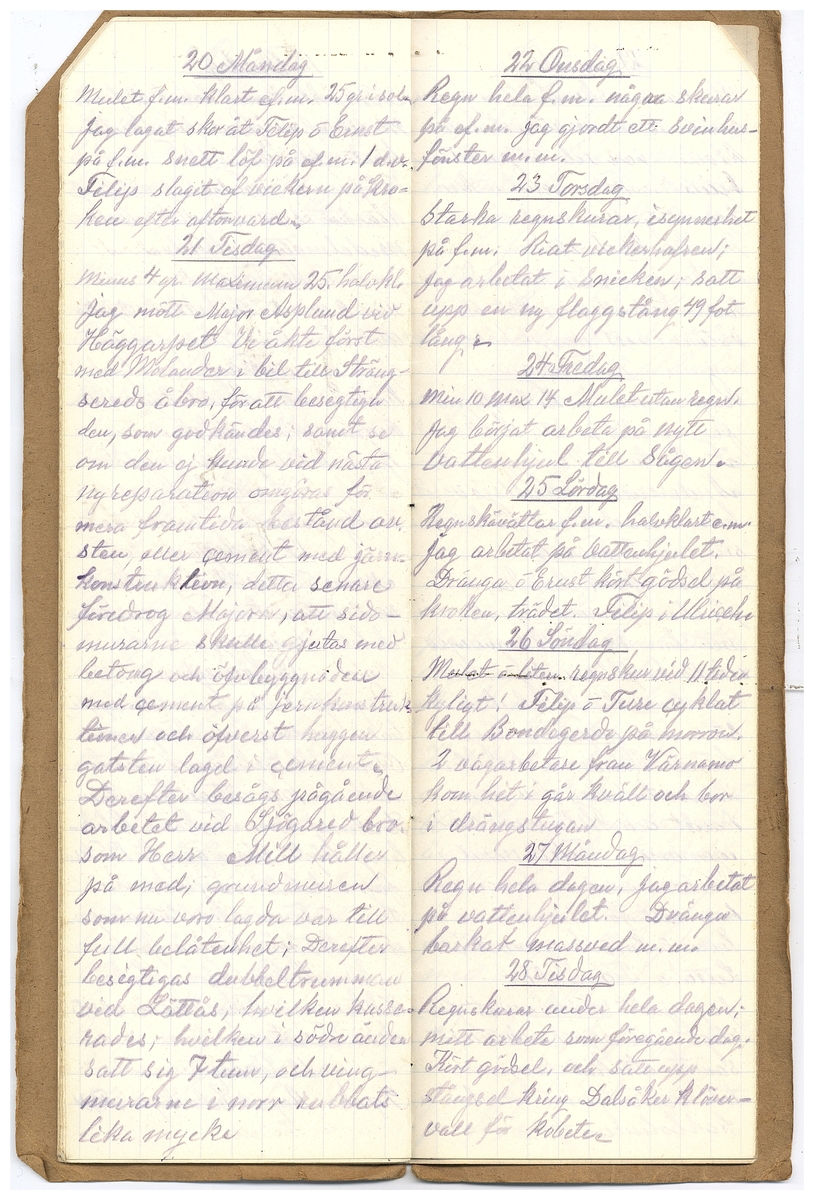 20 Måndag
Mulet f.m. klart ef.m. 25 gr i sol.
Jag lagat skor åt Filip ö Ernst
på f.m. snett löf på ef.m. 1 d.v.
Filip slagit af vickern på Kro-
ken efter aftonvard.
21 Tisdag
Minus 4 gr. Maximum 25. halvkl.
Jag mött Major Asplund vid
Häggarpet Vi åkte först
med Molander i bil till Sträng-
sereds åbro, för att besigtiga
den, som godkändes; samt se
om den ej kunde vid nästa
nyreparation omgöras för
mera framtida bestånd av
sten, eller cement med järn-
konstruktion, detta senare
föredrog Majorn, att sido-
murarne skulle gjutas med
betong och öfvbyggnaden
med cement på jernkonstruk
tioner och öfverst huggen
gatsten lagd i cement.
Derefter besågs pågående
arbetet vid Sjögared bro.
som Herr Mill håller
på med; grundmuren
som nu voro lagda var till
full belåtenhet; Derefter
besigtigas dubbeltrumman
vid Löttås, hvilken kasse-
rades; hvilken i södra änden
satt sig 7 tum, och ving-
murarne i norr rubbats
lika mycke
22 Onsdag
Regn hela f.m. några skurar
på ef.m. jag gjordt ett svinhus-
fönster m.m.
23 Torsdag
Starka regnskurar, isynnerhet
på f.m. kiat vickerhafren;
Jag arbetat i snicken; satt
upp en ny flaggstång 49 fot
lång.
24 Fredag
min 10 max 14 Mulet utan regn.
Jag börjat arbeta på nytt
vattenhjul till Sågen.
25 Lördag
Regnskvättar f.m. halvklart e.m.
Jag arbetat på vattenhjulet.
Dränga ö Ernst kört gödsel på
kroken, trädet. Filip i Ulriceh
26 Söndag
regnskur vid 11 tiden
Kyligt! Filip ö Ture cyklat
till Bondegerde på morron.
2 vägarbetare från Värnamo
kom hit i går kväll och bor
i drängstugan
27 Måndag
Regn hela dagen, Jag arbetat
på vattenhjulet. Dränga
barkat massved m.m.
28 Tisdag
Regnskurar under hela dagen;
mitt arbete som föregående dag.
Kört gödsel, och satt upp
stängsel kring Dalsåker klöver-
vall för kobete.